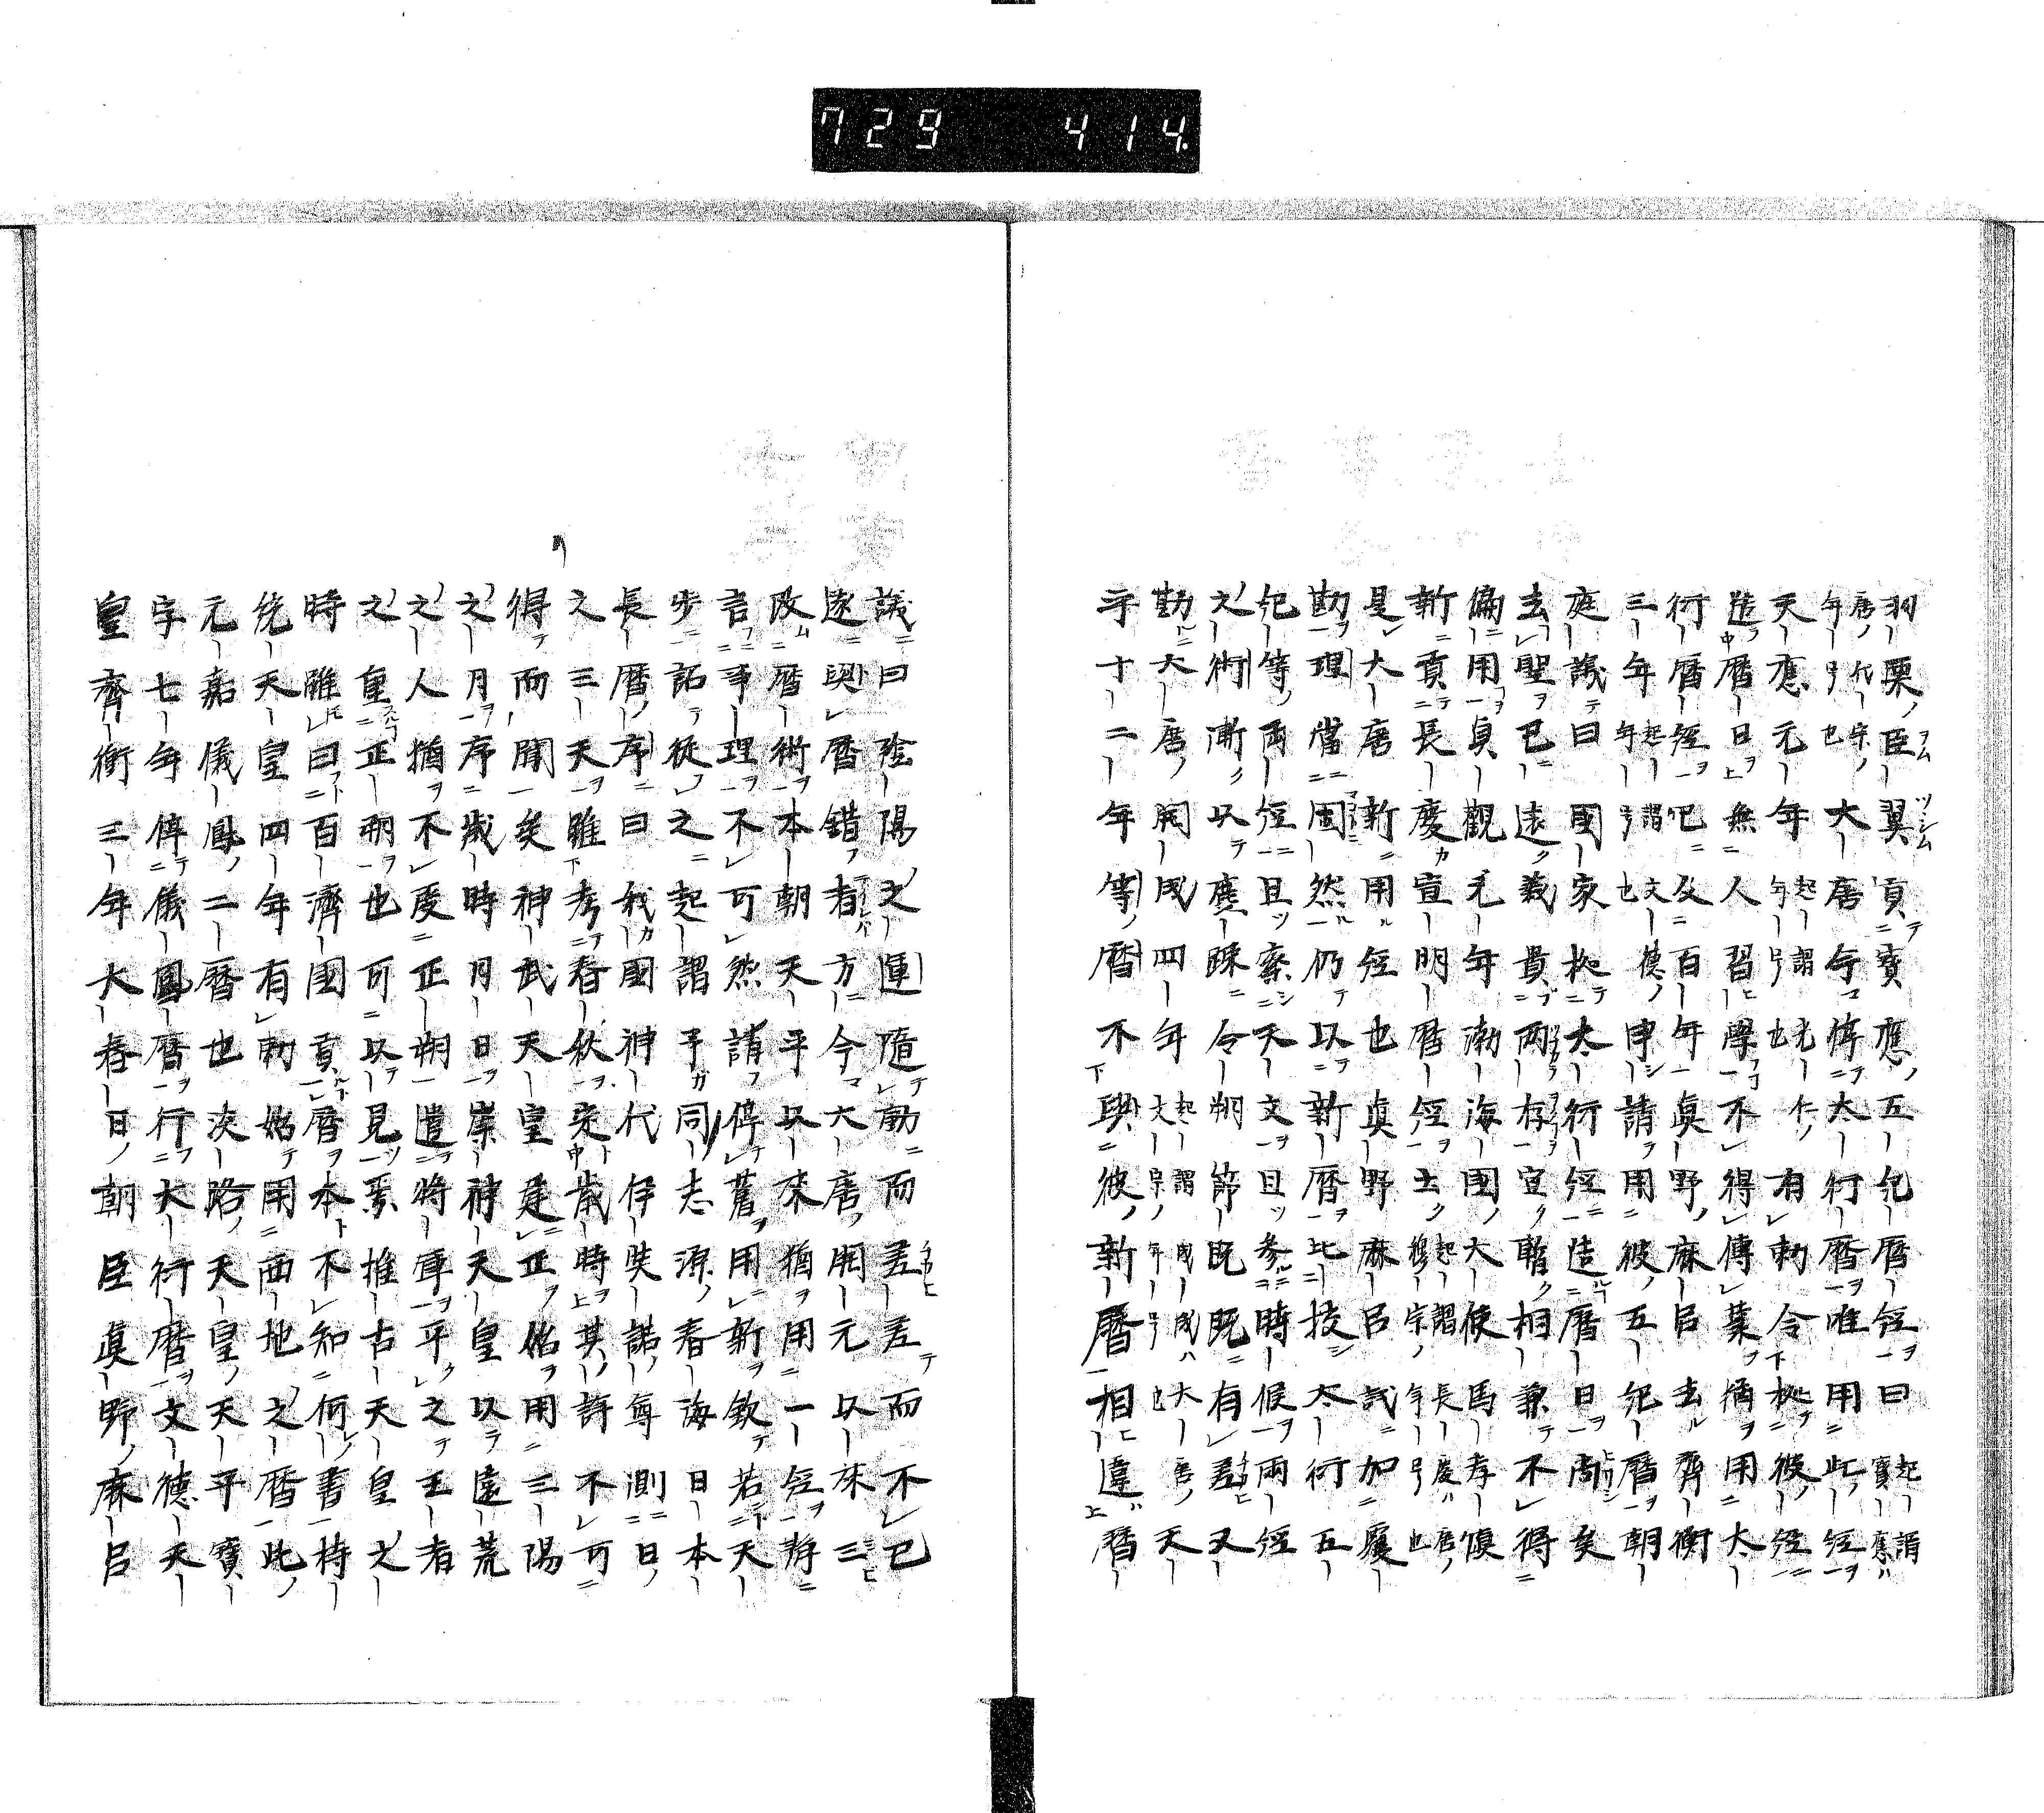 729 414.
羽栗臣翼貢寶應五紀曆經曰起謂寶應
唐代宗年号也大唐今停大衍曆唯用此經
天應元年起謂光仁年号也有勅令據彼經
造曆日無人習學不得傳業猶用大
衍曆經已及百年眞野麻呂去齊衡
三年起謂文德年号也申請用彼五紀曆朝
庭議曰國家據大衍經造曆日尚矣
去聖已遠義貴兩存宜暫相兼不得
偏用貞觀元年渤海國大使馬孝愼
新貢長慶宣明曆經云起謂穆宗年号長慶唐也
是大唐新用經也眞野麻呂試加覆
勘理當固然仍以新曆比挍大衍五
紀等兩經且察天文且參時候兩經
之術漸以麁踈令朔節既既有差又
勘大唐開成四年起謂文宗年号開成大唐也天
子十二年等曆不與彼新曆相違曆
議曰陰陽之運隨動而差差而不已
遂與曆錯者方今大唐開元以來三
改曆術本朝天平以來猶用一經靜
言事理不可然請停舊用新欽若天
步詔從之起謂予同志源春海日本
長曆序曰我國神代伊弉諾尊測日
之三天雖考春秋定歳時其詳不可
得而聞矣神武天皇建正始用三陽
之月序歳時月日崇神天皇以遠荒
之人猶不受正朔遣將軍平之王者
之重正朔也可以見焉推古天皇之
時雖曰百濟國貢曆本不知何書持
統天皇四年有勅始用西地之曆此
元嘉儀鳳二曆也淡路天皇天平寶
字七年停儀鳳曆行大衍曆文德天
皇齊衡三年大春日朝臣眞野麻呂